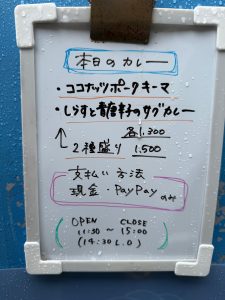 本日のカレー
・ココナッツポークキーマ
・しらすと青唐辛子のサグカレー
各1,300
2種盛り 1,500
支払い方法
現金・PayPay のみ
OPEN CLOSE
11:30 ～ 15:00
(14:30 L.O)